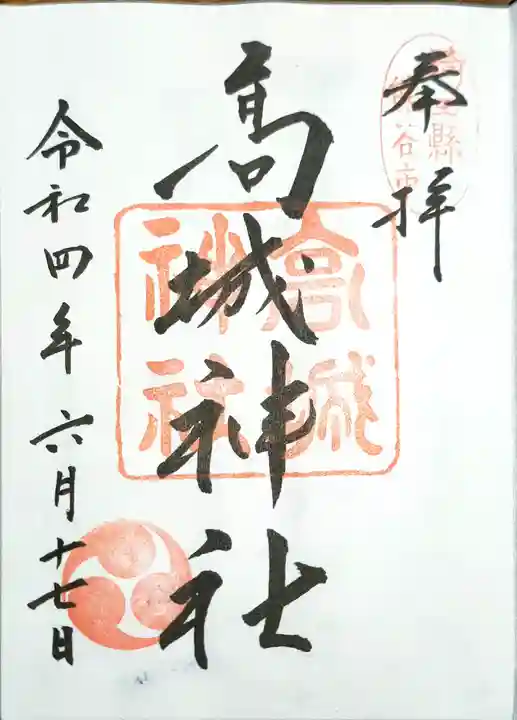 奉拝
埼玉縣
熊谷市
高城神社
高城
神社
令和四年六月十七日